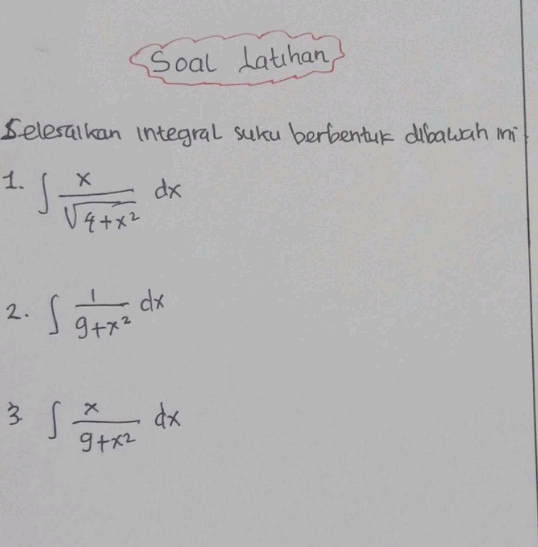 Soal Latihan
Selesaikan integral suku berbentuk dibawah ini
1. ∫ x/√(4+x²) dx
2. ∫ 1/(9+x²) dx
3 ∫ x/(9+x²) dx